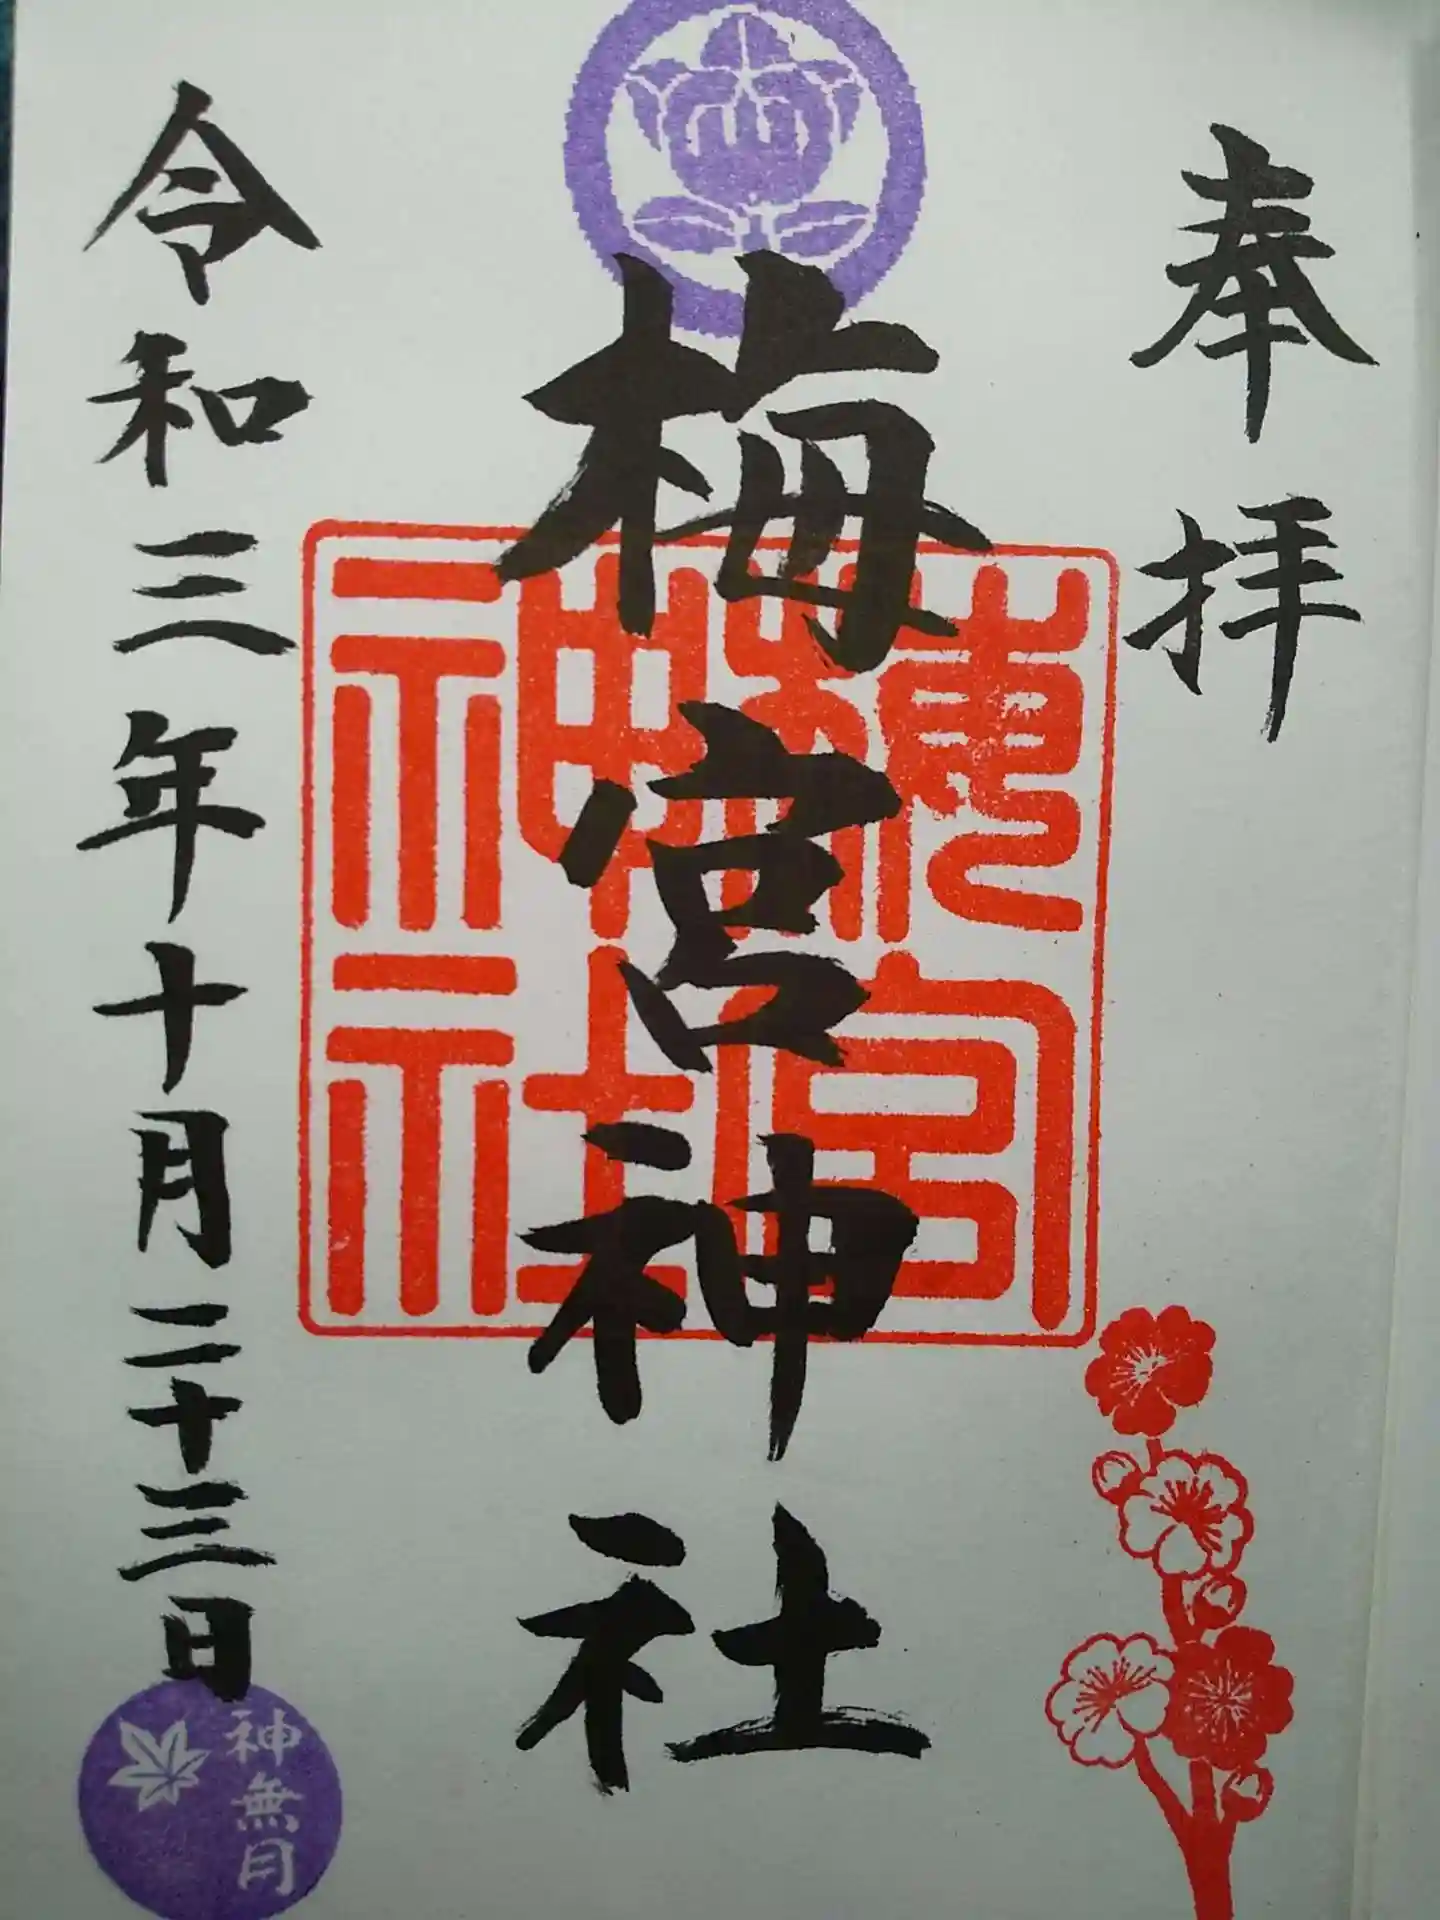 奉拝
梅宮神社
梅宮神社
令和三年十月二十三日
神無月